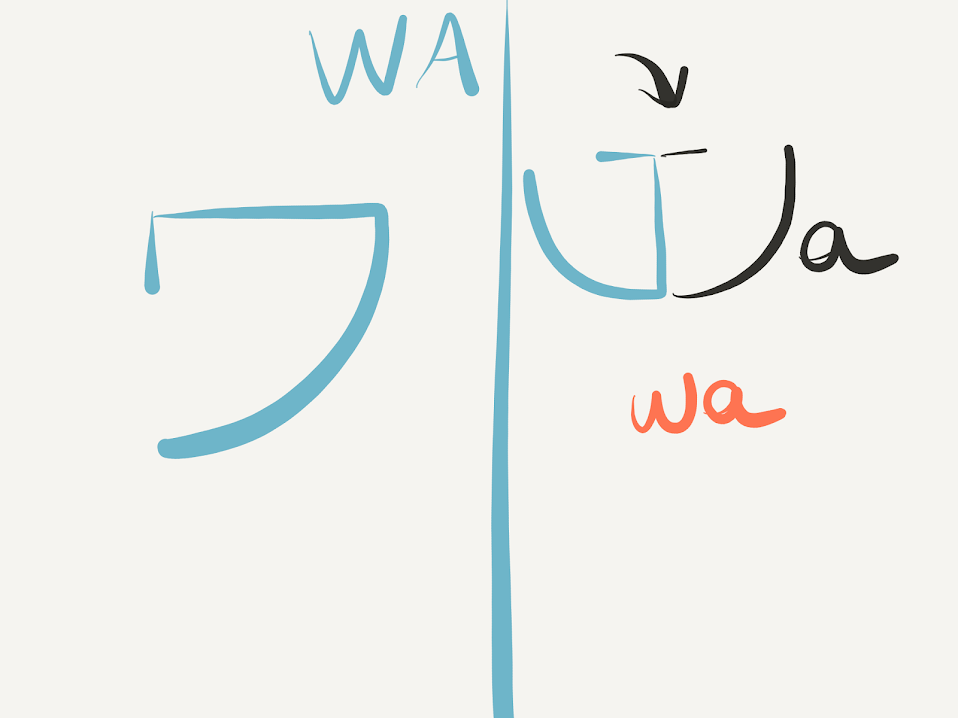 WA
ワ
wa
wa